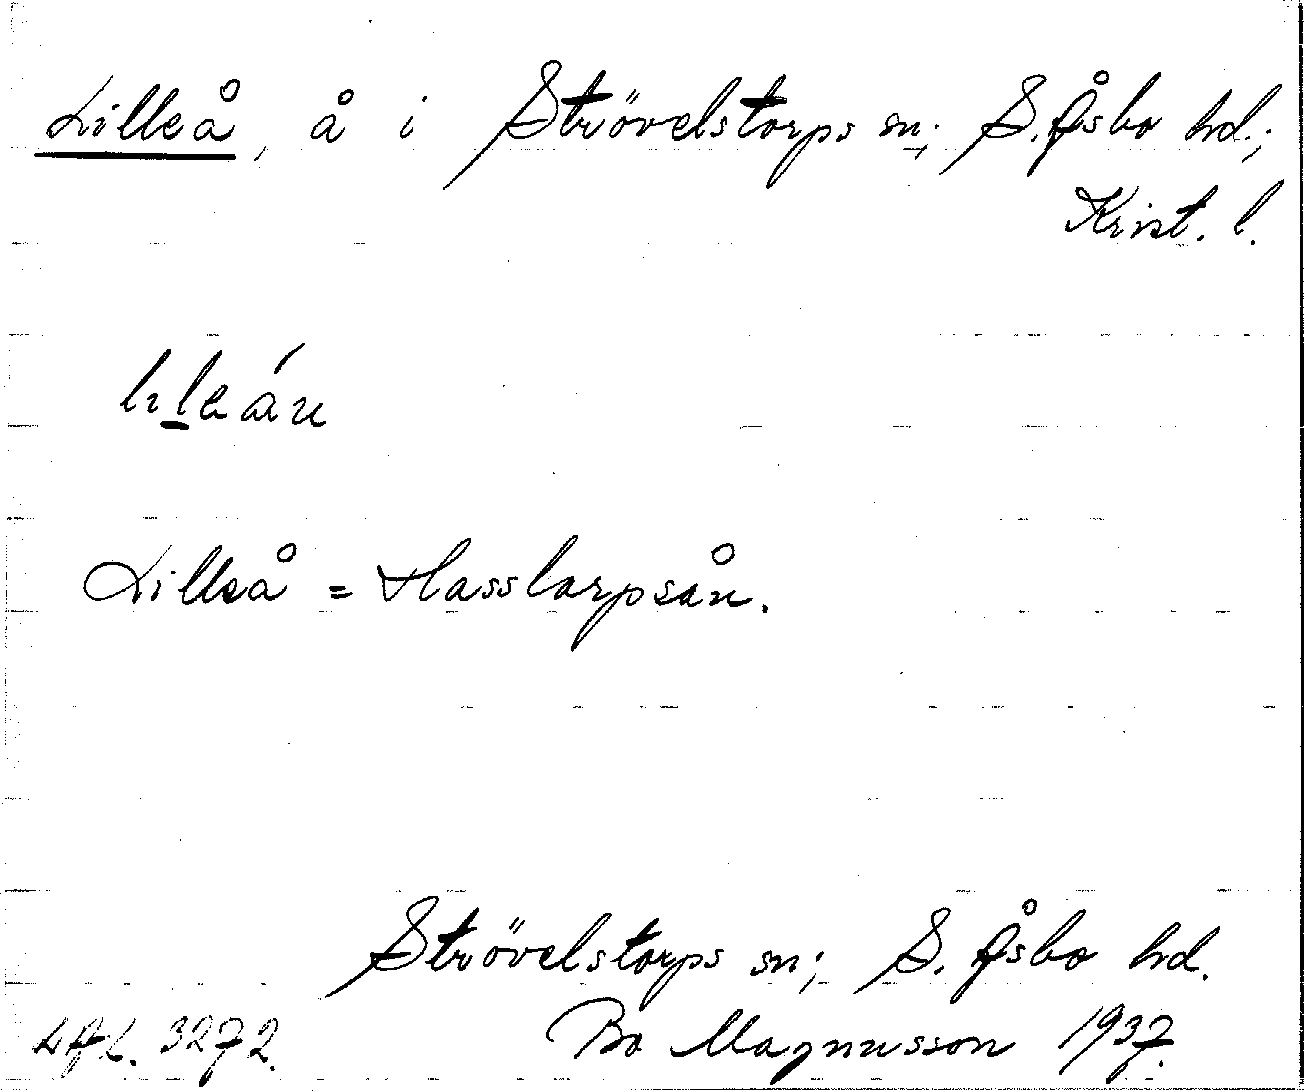 Lilleå, å i Strövelstorps sn; S. Åsbo hd.;
Krist. l.
Lilleå = Hasslarpsån.
Strövelstorps sn; S. Åsbo hd.
LAL. 3272. Bo Magnusson 1937.